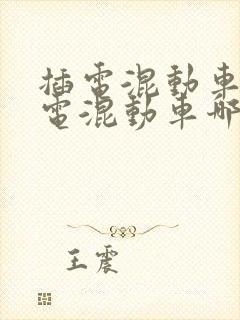 插電混動車
電混動車哪
王震